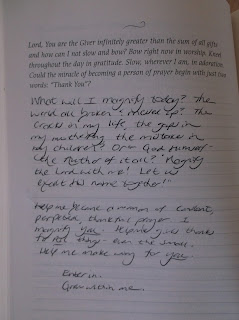 Lord, You are the Giver infinitely greater than the sum of all gifts
and how can I not slow and bow? Bow right now in worship. Kneel
throughout the day in gratitude. Slow, wherever I am, in adoration.
Could the miracle of becoming a person of prayer begin with just two
words: "Thank You"?
What will I magnify today? The
world all broken & messed up? The
cracks in my life, the gaps in
my mothering, the mistakes in
my children? Or God Himself -
the Author of it all? "Magnify
the Lord with me! Let us
exalt His name together!"
Help me become a woman of constant,
perpetual, thankful prayer. I
magnify you. Help me give thanks
to all things - even the small.
Help me make way for you.
Enter in.
Grow within me.